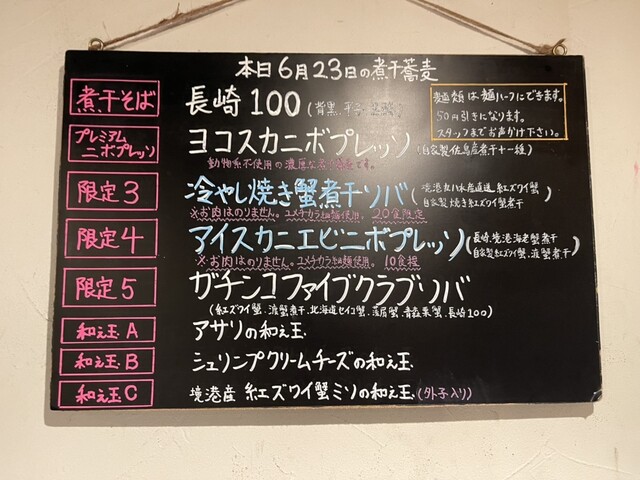 本日6月23日の煮干蕎麦
煮干そば
長崎100
麺類は麺ハーフにできます。
50円引きになります。
スタッフまでお声かけ下さい。
プレミアム
ニボプレッソ
ヨコスカニボプレッソ
動物系不使用の濃厚な
です。
限定3
冷やし焼き蟹煮干ソバ
自家製焼き紅ズワイ蟹煮干
※お肉はのりません。 20食限定
限定4
アイスカニエビニボプレッソ
長崎、境港海老蟹煮干
自家製紅ズワイ蟹、渡蟹煮干
※お肉はのりません。 10食限
限定5
ガチンコファイブクラブソバ
(紅ズワイ蟹、渡蟹煮干、北海道セイコ蟹、
長崎100)
和え玉A
アサリの和え玉
和え玉B
シュリンプクリームチーズの和え玉
和え玉C
境港産 紅ズワイ蟹ミソの和え玉(外子入り)